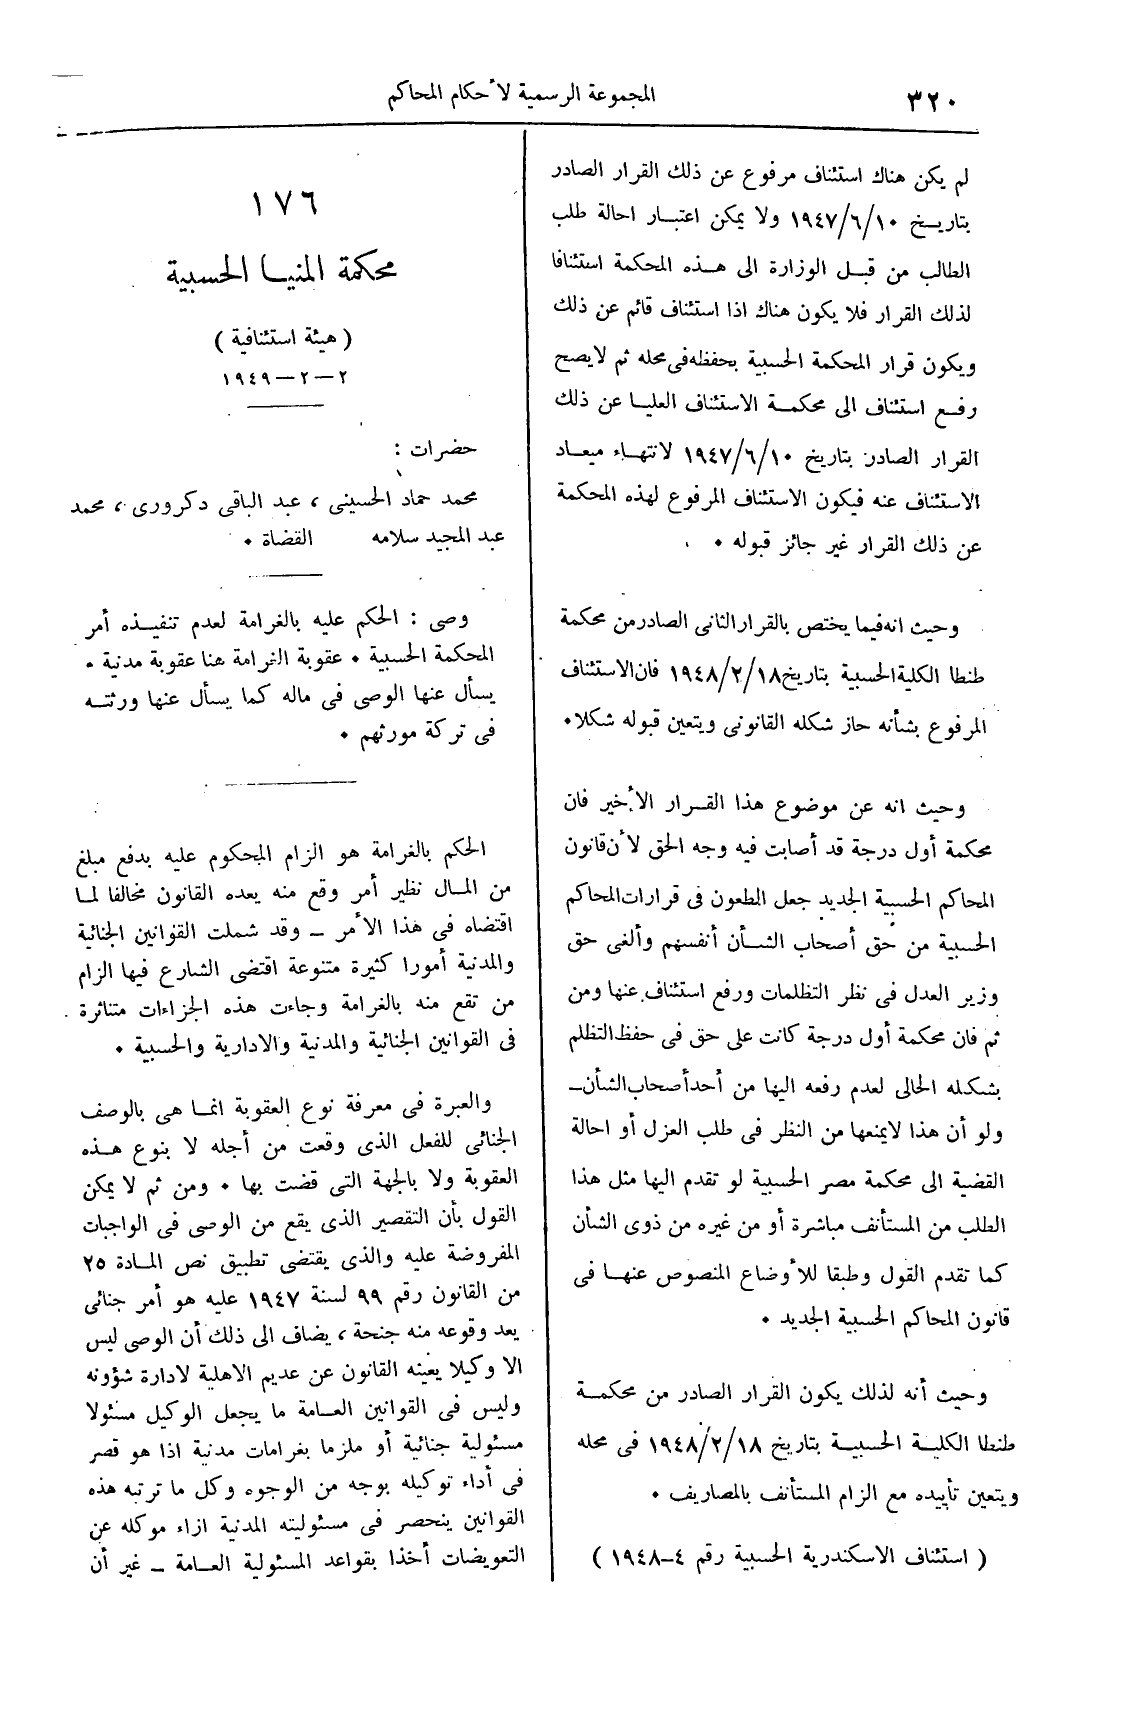 ٣٢٠
المجموعة الرسمية لأحكام المحاكم
لم يكن هناك استئناف مرفوع عن ذلك القرار الصادر
بتاريخ ١٩٤٧/٦/١٠ ولا يمكن اعتبار احالة طلب
الطالب من قبل الوزارة الى هذه المحكمة استئنافا
لذلك القرار فلا يكون هناك اذا استئناف قائم عن ذلك
ويكون قرار المحكمة الحسبية بحفظه فى محله ثم لا يصح
رفع استئناف الى محكمة الاستئناف العليا عن ذلك
القرار الصادر بتاريخ ١٩٤٧/٦/١٠ لانتهاء ميعاد
الاستئناف عنه فيكون الاستئناف المرفوع لهذه المحكمة
عن ذلك القرار غير جائز قبوله ٠
وحيث انه فيما يختص بالقرار الثانى الصادر من محكمة
طنطا الكلية الحسبية بتاريخ ١٩٤٨/٢/١٨ فان الاستئناف
المرفوع بشأنه حاز شكله القانونى ويتعين قبوله شكلا ٠
وحيث انه عن موضوع هذا القرار الأخير فان
محكمة أول درجة قد أصابت فيه وجه الحق لأن قانون
المحاكم الحسبية الجديد جعل الطعون فى قرارات المحاكم
الحسبية من حق أصحاب الشأن أنفسهم وألغى حق
وزير العدل فى نظر التظلمات ورفع استئناف عنها ومن
ثم فان محكمة أول درجة كانت على حق فى حفظ التظلم
بشكله الحالى لعدم رفعه اليها من أحد أصحاب الشأن ـ
ولو أن هذا لا يمنعها من النظر فى طلب العزل أو احالة
القضية الى محكمة مصر الحسبية لو تقدم اليها مثل هذا
الطلب من المستأنف مباشرة أو من غيره من ذوى الشأن
كما تقدم القول وطبقا للأوضاع المنصوص عنها فى
قانون المحاكم الحسبية الجديد ٠
وحيث أنه لذلك يكون القرار الصادر من محكمة
طنطا الكلية الحسبية بتاريخ ١٩٤٨/٢/١٨ فى محله
ويتعين تأييده مع الزام المستأنف بالمصاريف ٠
( استئناف الاسكندرية الحسبية رقم ٤ـ١٩٤٨ )
١٧٦
محكمة المنيا الحسبية
( هيئة استئنافية )
٢ ـ ٢ ـ ١٩٤٩
حضرات :
محمد حماد الحسينى ، عبد الباقى دكرورى ، محمد
عبد المجيد سلامه القضاة ٠
وصى : الحكم عليه بالغرامة لعدم تنفيذه أمر
المحكمة الحسبية ٠ عقوبة الغرامة هنا عقوبة مدنية ٠
يسأل عنها الوصى فى ماله كما يسأل عنها ورثته
فى تركة مورثهم ٠
الحكم بالغرامة هو الزام المحكوم عليه بدفع مبلغ
من المال نظير أمر وقع منه يعده القانون مخالفا لما
اقتضاه فى هذا الأمر ـ وقد شملت القوانين الجنائية
والمدنية أمورا كثيرة متنوعة اقتضى الشارع فيها الزام
من تقع منه بالغرامة وجاءت هذه الجزاءات متناثرة
فى القوانين الجنائية والمدنية والادارية والحسبية ٠
والعبرة فى معرفة نوع العقوبة انما هى بالوصف
الجنائى للفعل الذى وقعت من أجله لا بنوع هذه
العقوبة ولا بالجهة التى قضت بها ٠ ومن ثم لا يمكن
القول بأن التقصير الذى يقع من الوصى فى الواجبات
المفروضة عليه والذى يقتضى تطبيق نص المادة ٢٥
من القانون رقم ٩٩ لسنة ١٩٤٧ عليه هو أمر جنائى
يعد وقوعه منه جنحة ، يضاف الى ذلك أن الوصى ليس
الا وكيلا يعينه القانون عن عديم الاهلية لادارة شؤونه
وليس فى القوانين العامة ما يجعل الوكيل مسئولا
مسئولية جنائية أو ملزما بغرامات مدنية اذا هو قصر
فى أداء توكيله بوجه من الوجوه وكل ما ترتبه هذه
القوانين ينحصر فى مسئوليته المدنية ازاء موكله عن
التعويضات أخذا بقواعد المسئولية العامة ـ غير أن